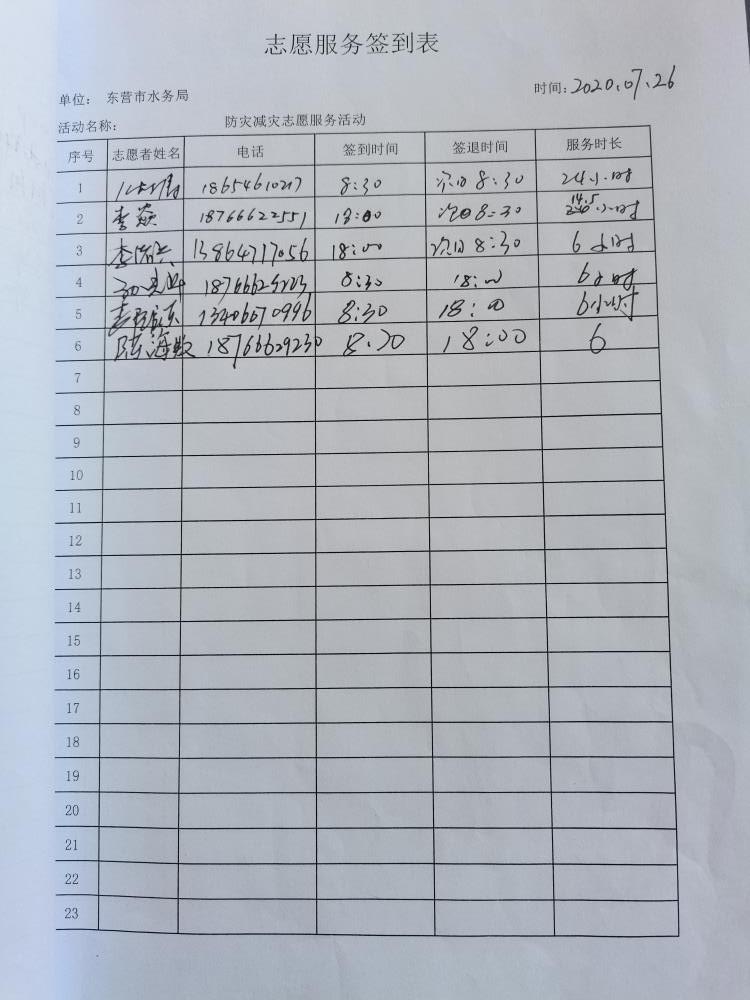 志愿服务签到表
单位： 东营市水务局 时间：2020.07.26
活动名称： 防灾减灾志愿服务活动
序号 志愿者姓名 电话 签到时间 签退时间 服务时长
1 18654610217 8:30 次日 8:30 24小时
2 李焱 18766622551 18:00 次日 8:30 14.5 小时
3 13864717056 18:00 次日 8:30 6小时
4 8:30 18:00 6小时
5 13406670996 8:30 18:00 6小时
6 18766629230 8:30 18:00 6
7
8
9
10
11
12
13
14
15
16
17
18
19
20
21
22
23